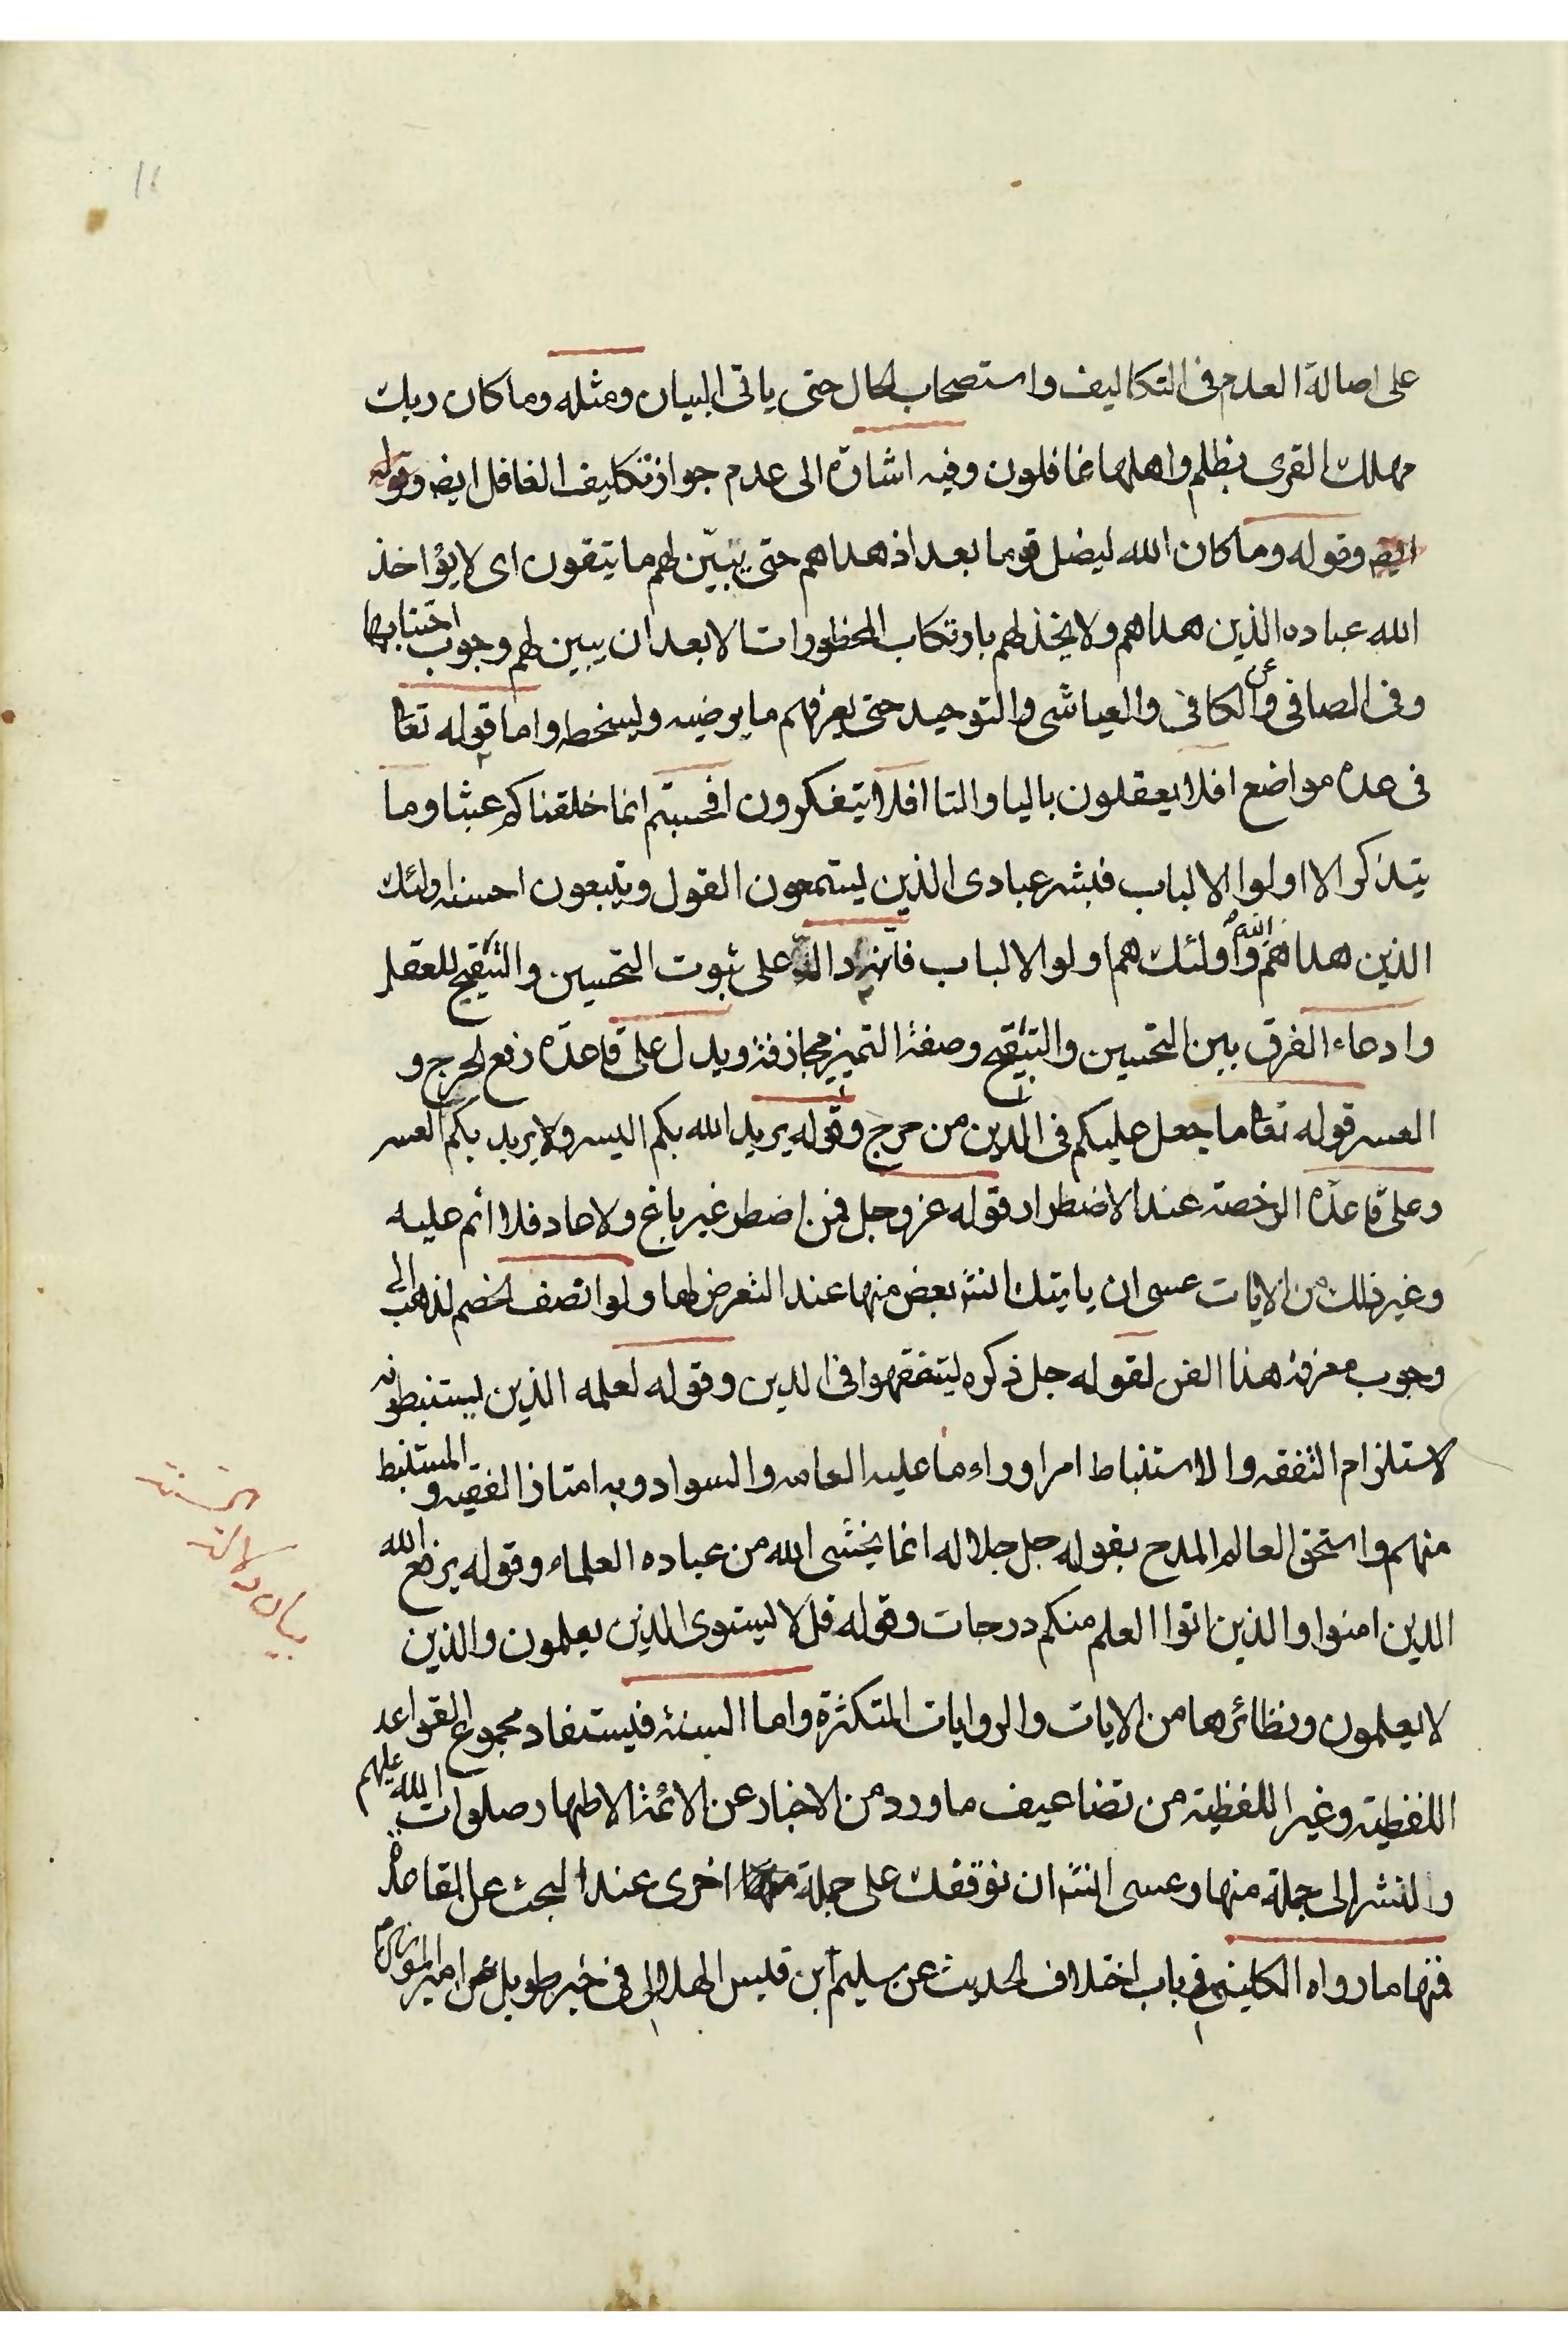 على اصالة العدم فى التكاليف واستصحاب الحال حتى ياتى البيان ومثله وما كان ربك
مهلك القرى بظلم واهلها غافلون وفيه اشارة الى عدم جواز تكليف الغافل ايضه وقوله
ايضه وقوله وما كان الله ليضل قوما بعد اذ هداهم حتى يبيّن لهم ما يتقون اى لا يؤاخذ
الله عباده الذين هداهم ولا يخذلهم بارتكاب المحظورات الا بعد ان يبين لهم وجوب اجتنابها
وفى الصافى عن الكافى والعياشى والتوحيد حتى يعرفهم ما يرضيه وليسخطه واما قوله تعا
فى عده مواضع افلا يعقلون باليا والتا افلا يتفكرون افحسبتم انما خلقناكم عبثا وما
يتذكر الا اولوا الالباب فبشر عبادى الذين يستمعون القول ويتبعون احسنه اولئك
الذين هداهم الله واولئك هم اولو الالباب على ثبوت التحسين والتقبيح للعقل
وادعاء الفرق بين التحسين والتقبيح وصفة التميز مجازفة ويدل على قاعدة رفع الحرج و
العسر قوله تعا ما جعل عليكم فى الدين من حرج وقوله يريد الله بكم اليسر ولا يريد بكم العسر
وعلى قاعدة الرخصة عند الاضطرار قوله عز وجل فمن اضطر غير باغ ولا عاد فلا اثم عليه
وغير ذلك من الايات عسى ان ياتيك انشه بعض منها عند التعرض لها ولو انصف الخصم لذهب الى
وجوب معرفة هذا الفن لقوله جل ذكره ليتفقهوا فى الدين وقوله لعلمه الذين يستنبطونه
لاستلزام التفقه والاستنباط امرا وراء ما عليه العامه والسواد وبه امتاز الفقيه والمستنبط
منهم واستحق العالم المدح بقوله جل جلاله انما يخشى الله من عباده العلماء وقوله يرفع الله
الذين امنوا والذين اتوا العلم منكم درجات وقوله قل لا يستوى الذين يعلمون والذين
لا يعلمون ونظائرها من الايات والروايات المتكثرة واما السنة فيستفاد مجموع القواعد
اللفظية وغير اللفظية من تضاعيف ما ورد من الاخبار عن الائمة الاطهار صلوات الله عليهم
ولنشر الى جملة منها وعسى انشه ان نوقفك على جملة اخرى عند البحث عن المقاصد
فمنها ما رواه الكلينى فى باب اختلاف الحديث عن سليم ابن قيس الهلالى فى خبر طويل عن امير المؤمنين
بيان دلالة السنة